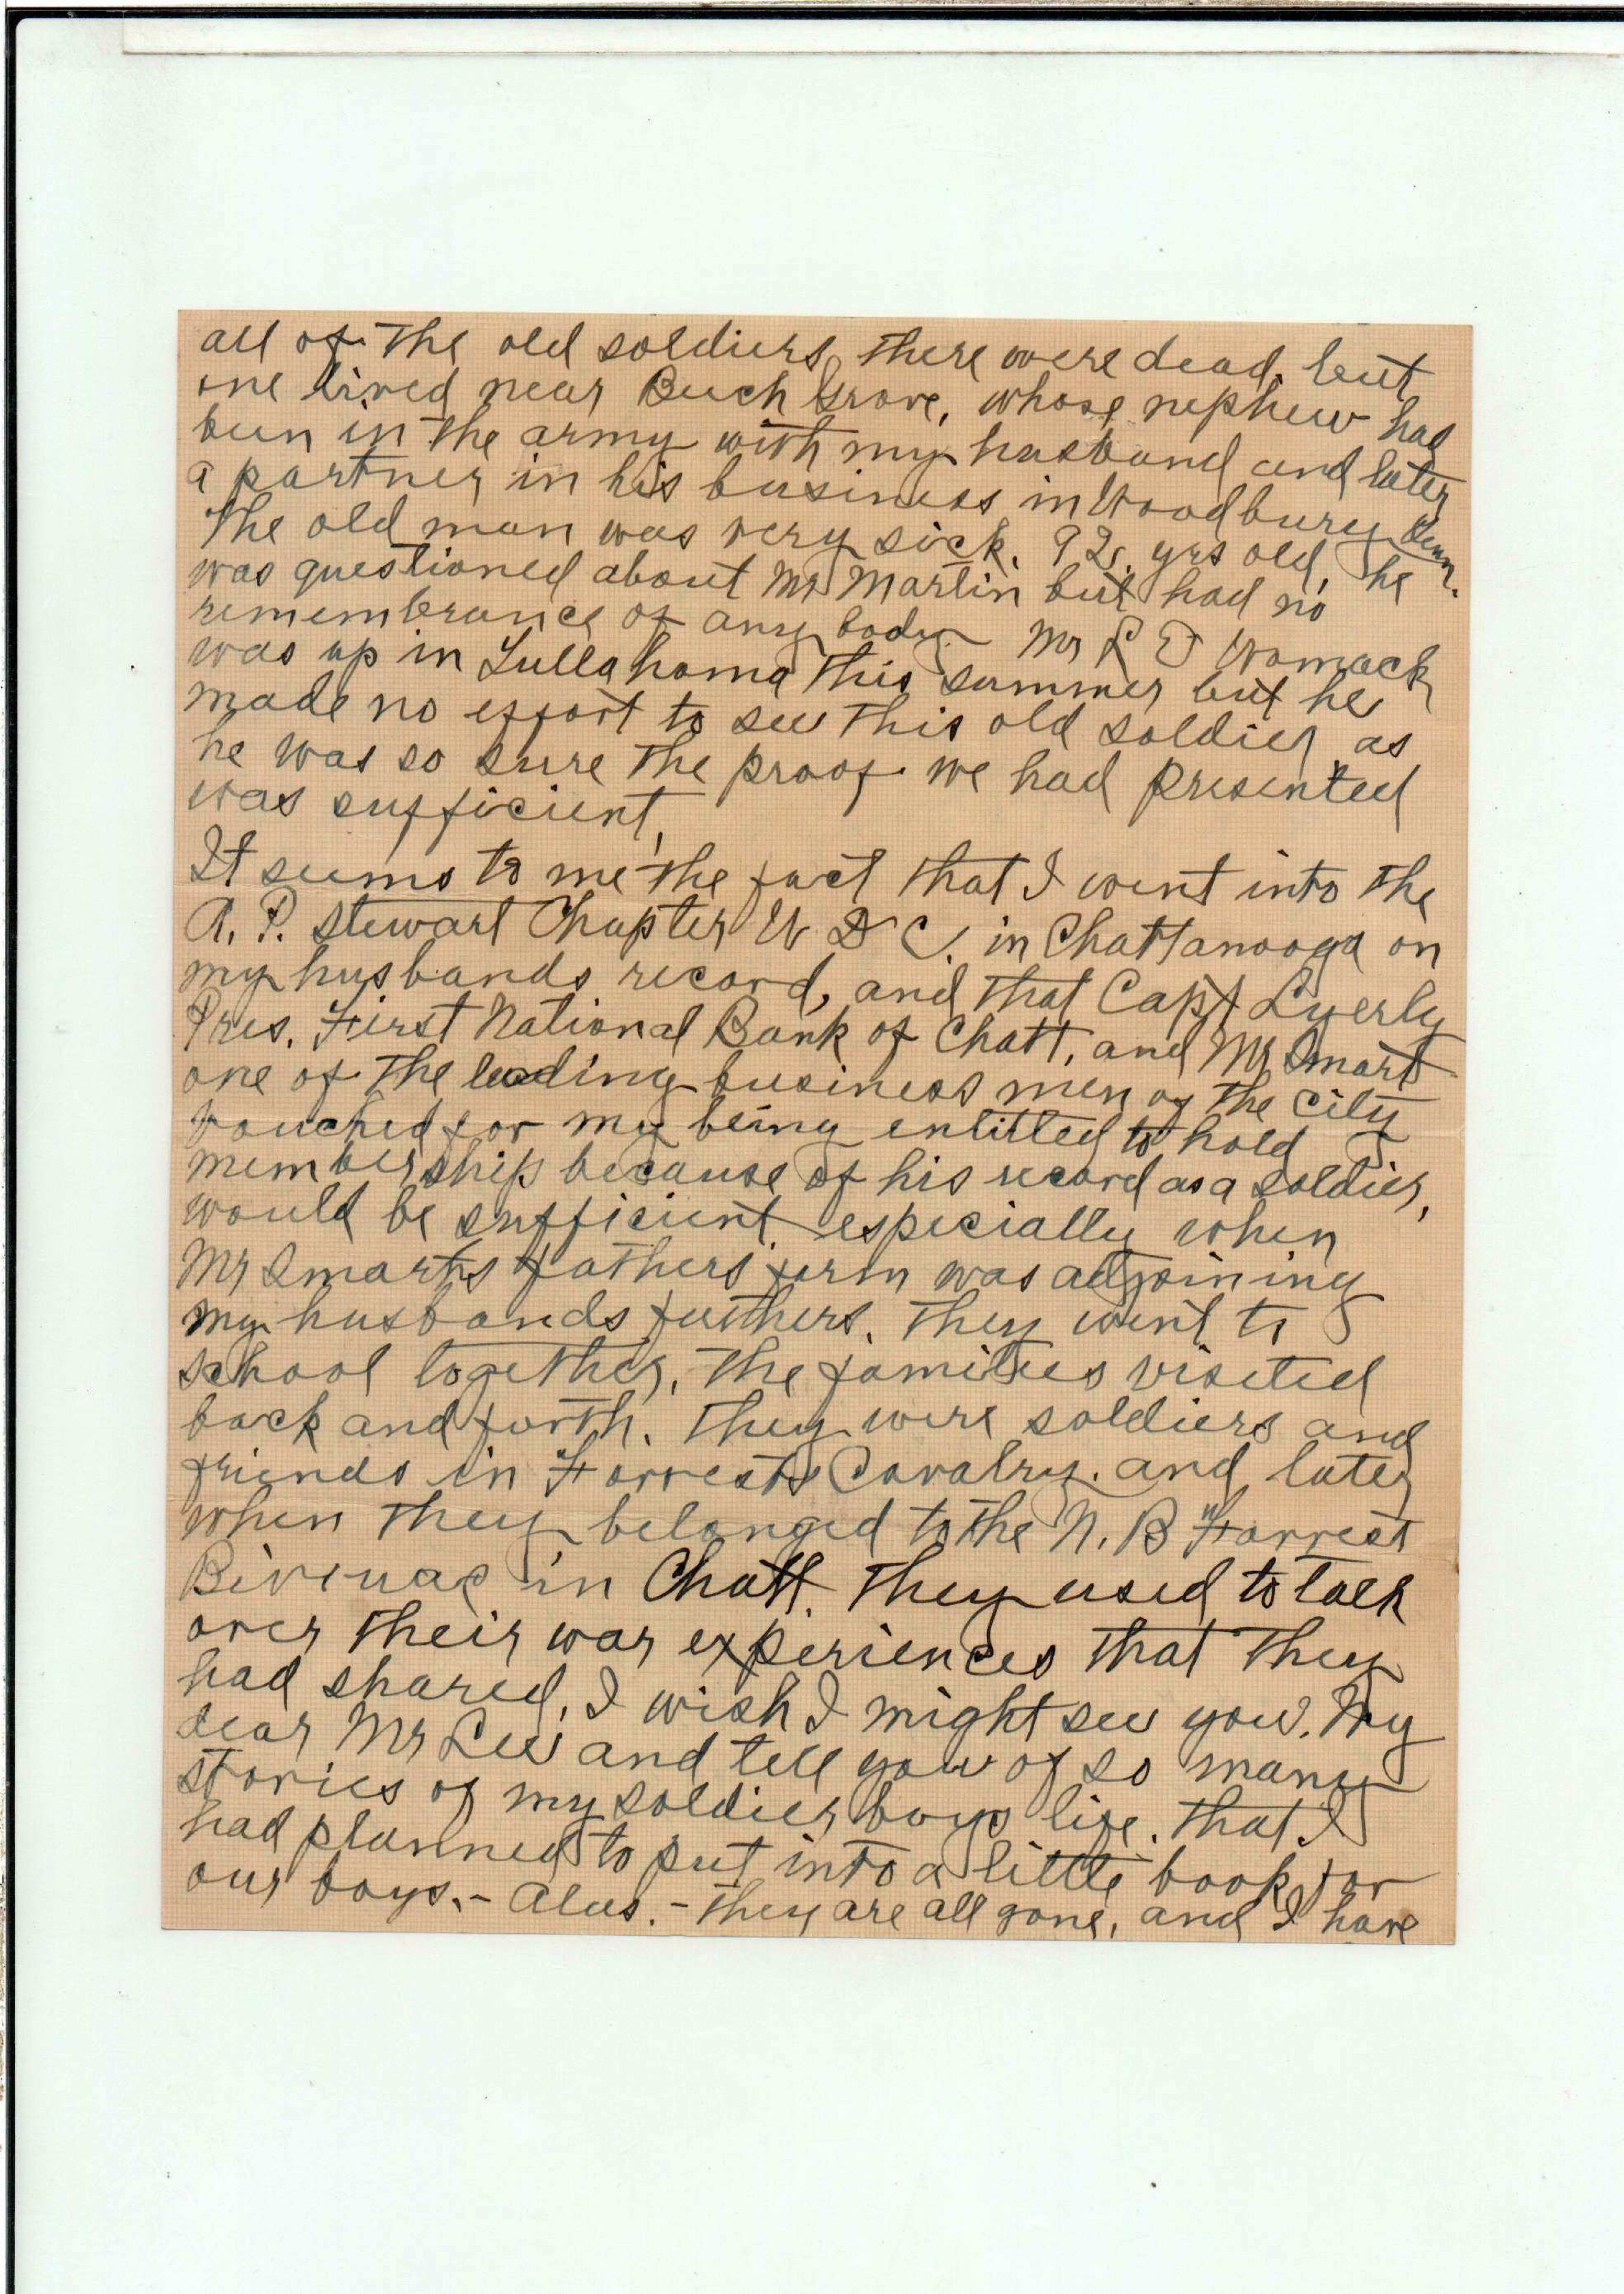 all of the old soldiers, there were dead, but
one lived near Beech Grove, whose nephew had
been in the army with my husband and later
a partner in his business in Woodbury Tenn.
The old man was very sick. 92. yrs old, he
was questioned about Mr Martin but had no
remembrance of any body Mr L D Womack
was up in Tullahoma this summer but he
made no effort to see this old soldier, as
he was so sure the proof we had presented
was sufficient,
It seems to me the fact that I went into the
A. P. Stewart Chapter U D C. in Chattanooga on
my husbands record, and that Capt Lyerly
Pres. First National Bank of Chatt, and Mr Smart
one of the leading business men of the city
vouched for my being entitled to hold
membership because of his record as a soldier,
would be sufficient especially when
Mr Smarts fathers farm was adjoining
my husbands fathers. They went to
school together, the families visited
back and forth. They were soldiers and
friends in Forrests Cavalry. and later
when they belonged to the N. B Forrest
Bivouac in Chatt. They used to talk
over their war experiences that they
had shared, I wish I might see you. My
dear Mr Lee and tell you of so many
stories of my soldier boys life. that I
had planned to put into a little book for
our boys.- Alas.- They are all gone, and I have